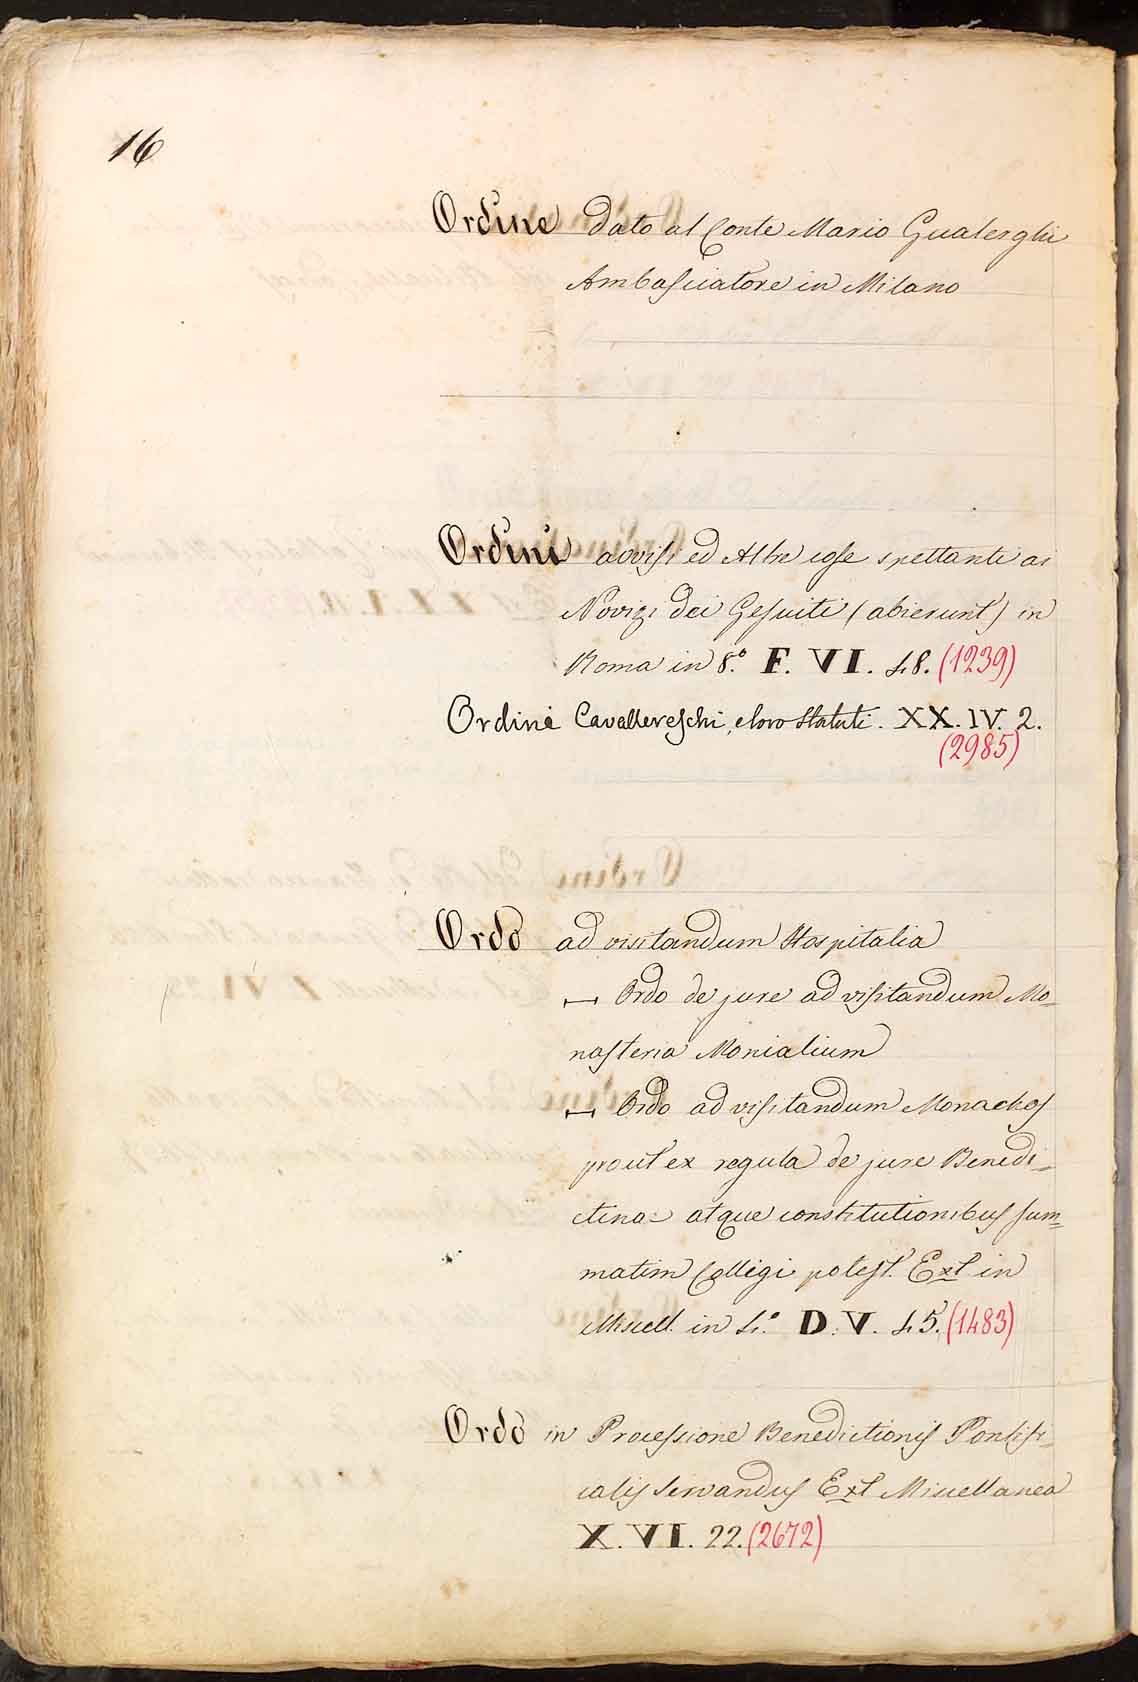 16
Ordine dato al Conte Mario Gualenghi
Ambasciatore in Milano
Ordini avvisi ed Altre cose spettanti ai
Novizi dei Gesuiti (abierunt) in
Roma in 8.º F. VI. 48. (1239)
Ordini Cavallereschi, e loro Statuti. XX. IV. 2.
(2985)
Ordo ad visitandum Hospitalia
— Ordo de jure ad visitandum Mo=
nasteria Monialium
— Ordo ad visitandum Monachos
prout ex regula de jure Benedi=
ctina atque constitutionibus sum=
matim Colligi potest. Ext in
Miscell. in 4.º D. V. 45. (1483)
Ordo in Processione Benedictionis Pontifi=
calis servandus Ext Miscellanea
X. VI. 22. (2672)